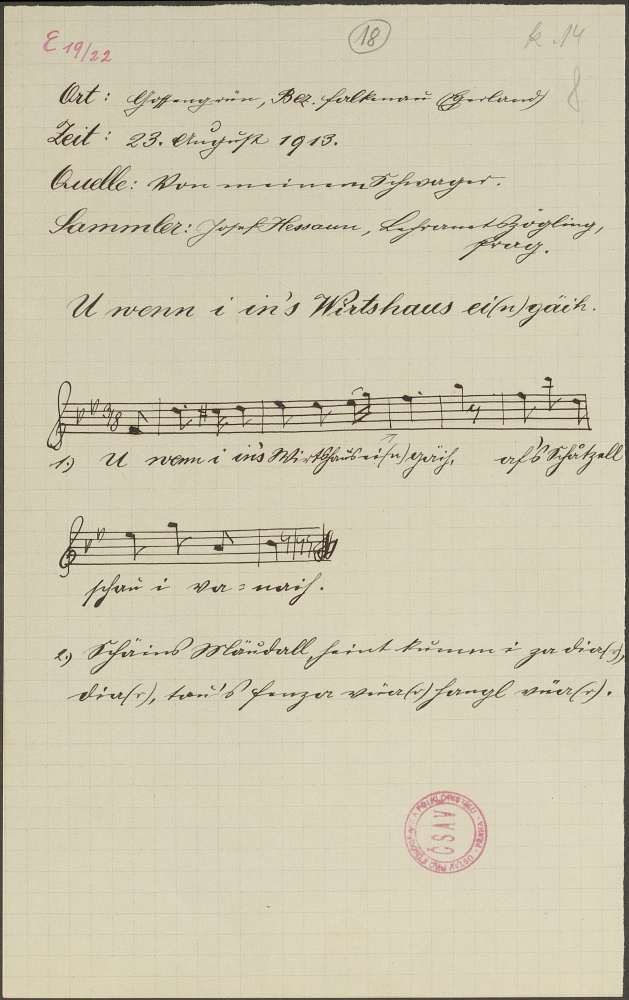 E 19/22
18
k. 14
8
Ort: Gossengrün, Bez. Falkenau (Egerland)
Zeit: 23. August 1913.
Quelle: Von meinem Schwager.
Sammler: Josef Hessaun, Lehramtszögling,
Prag.
U wenn i in's Wirtshaus ei(n)gäih.
3/8
1.) U wenn i in's Wirtshaus ei(n)gäih, af's Schåtzell
schau i va=naih.
2.) Schäins Mäudall, heint kumm i za dia(r),
dia(r), tou's Fenza vüa(r) hangl vüa(r).
ČSAV